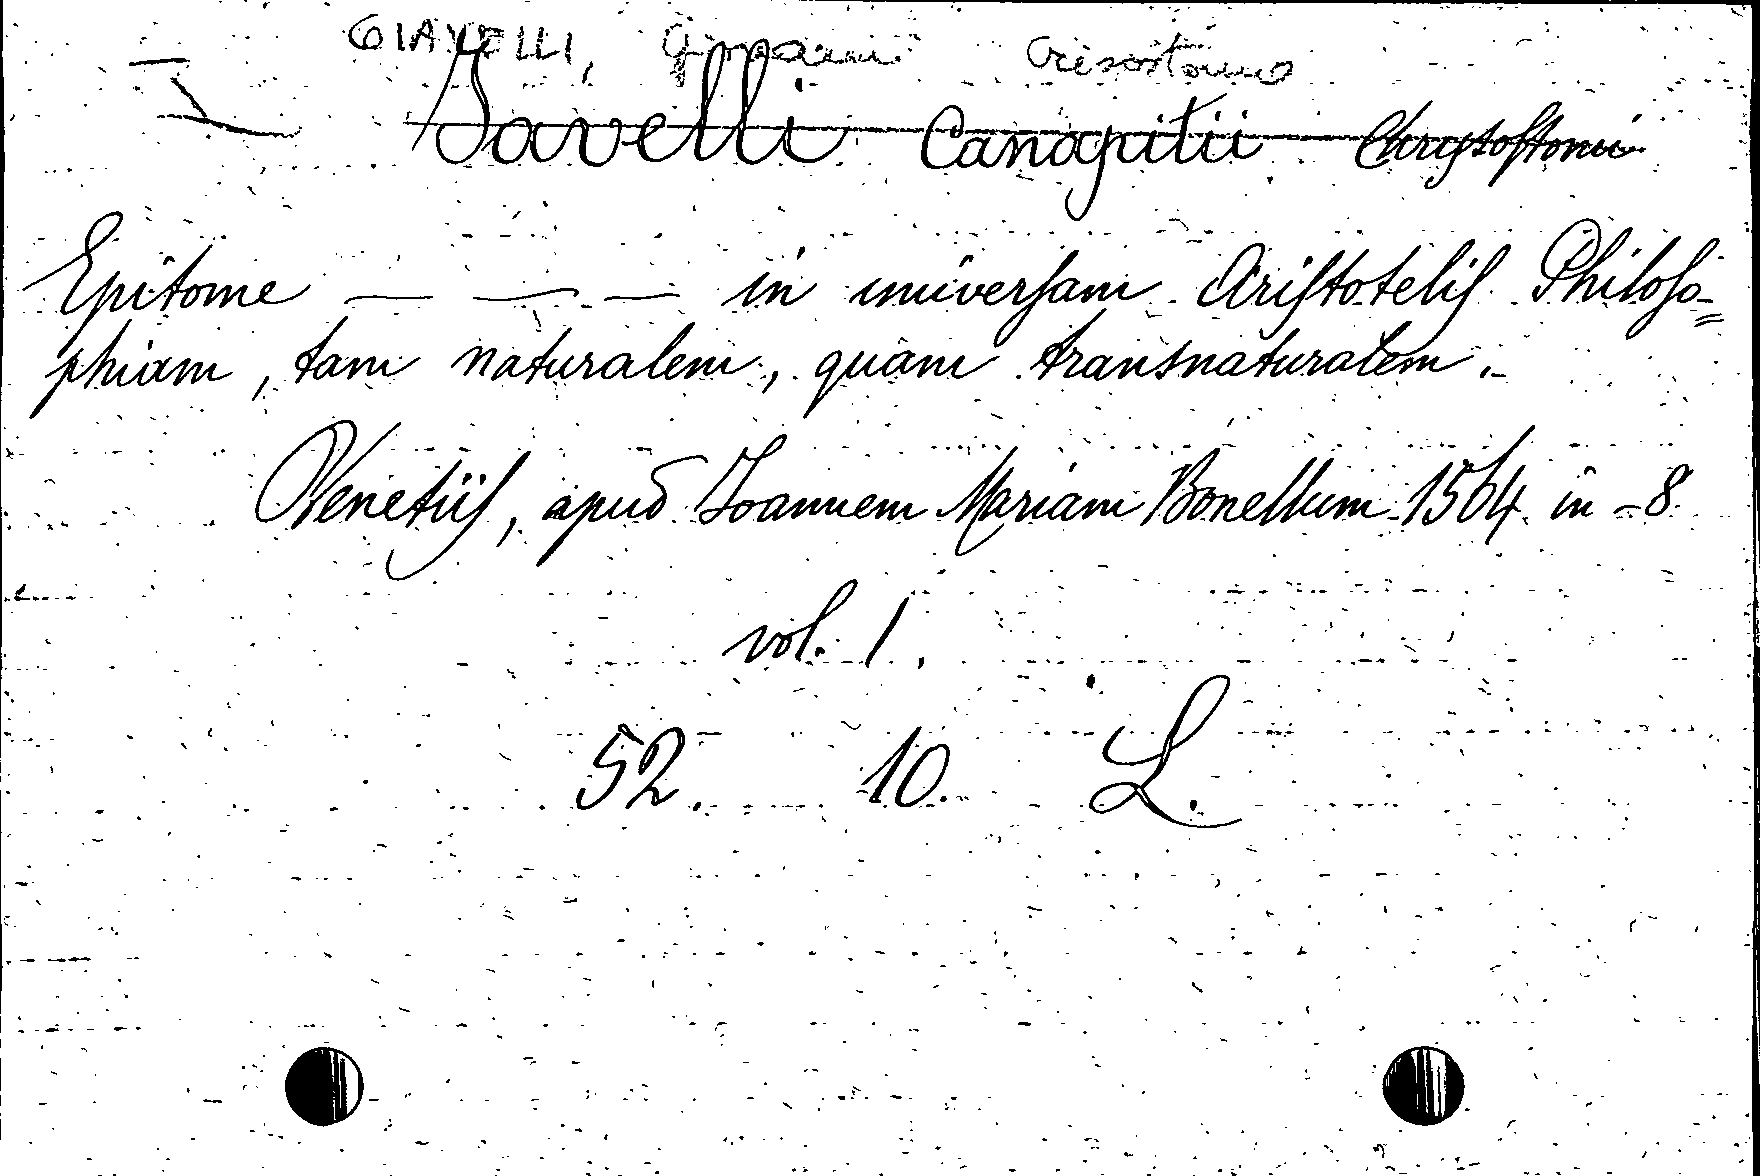 GIAVELLI, Giovanni Crisostomo
Javelli Canapitii Chrysostomi
Epitome — — — in universam Aristotelis Philoso=
phiam, tam naturalem, quàm transnaturalem.
Venetiis, apud Joannem Mariam Bonellum 1564 in-8
vol. 1.
52. 10. L.